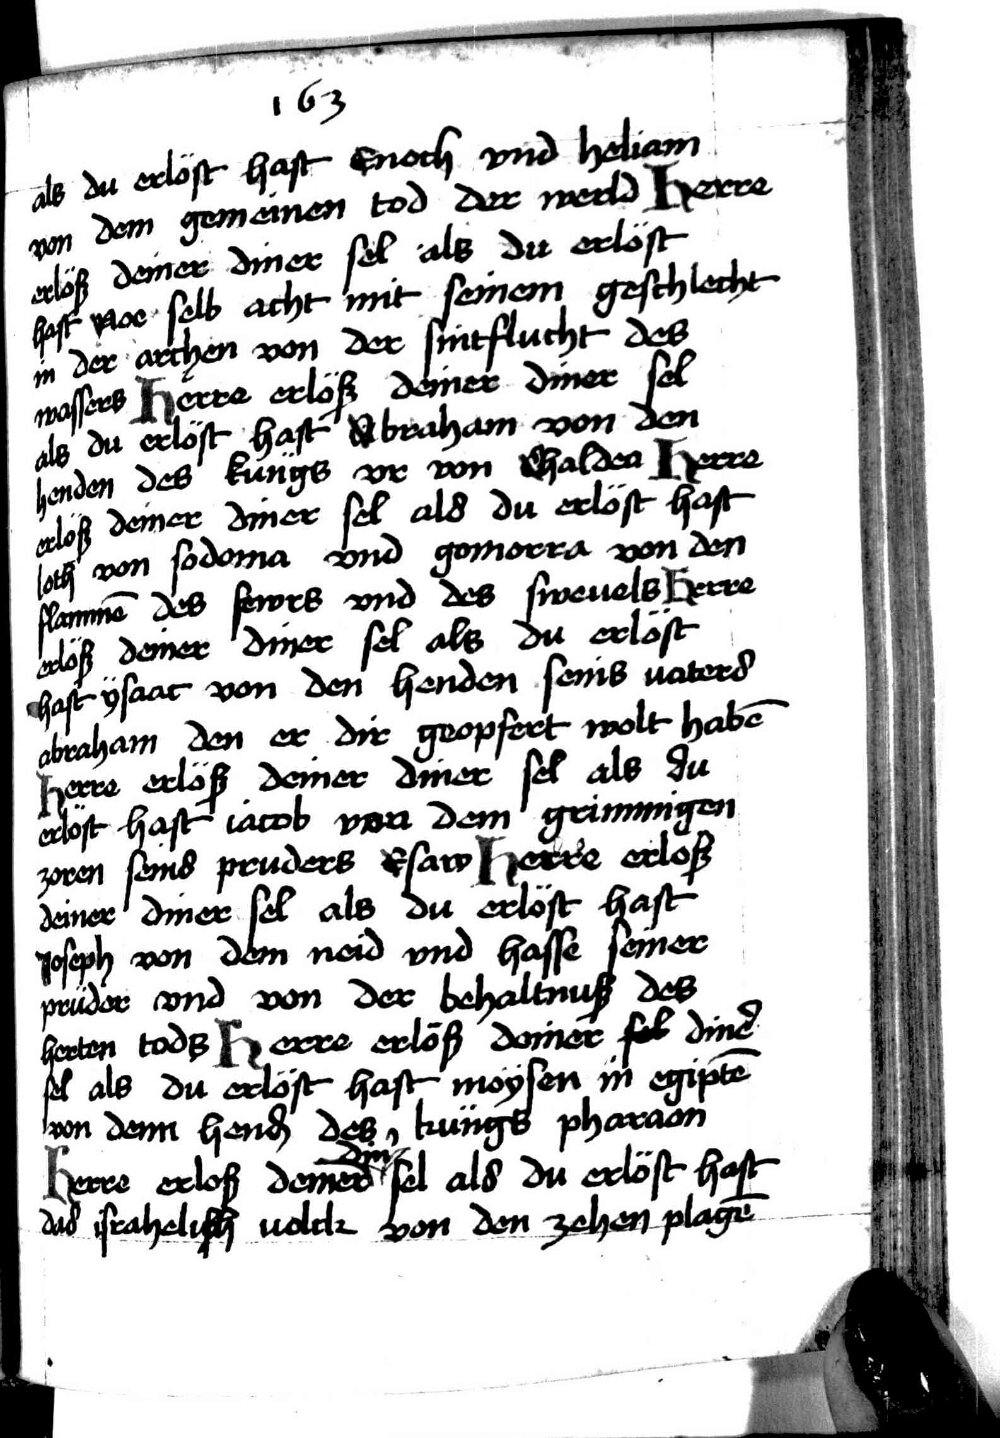 163
als du erlöst hast Enoch vnd heliam
von dem gemeinen tod der werld Herre
erlöß deiner diner sel als du erlöst
hast Noe selb acht mit seinem geschlecht
in der archen von der sintflucht des
wassers Herre erlöß deiner diner sel
als du erlöst hast Abraham von den
henden des künigs vr von Chaldea Herre
erlöß deiner diner sel als du erlöst hast
loth von sodoma vnd gomorra von den
flammē des fewrs vnd des swevels Herre
erlöß deiner diner sel als du erlöst
hast ÿsaac von den henden seins vaters
abraham den er dir geopfert wolt habē
Herre erlöß deiner diner sel als du
erlöst hast iacob von dem grimmigen
zoren seins pruders Esaw Herre erloß
deiner diner sel als du erlöst hast
Joseph von dem neid vnd hasse seiner
prüder vnd von der behaltnuß des
herten tods Herre erlöß deiner sel dineR
sel als du erlöst hast möysen in egiptē
von denn hend des künigs pharaon
Herre erloß deiner din sel als du erlöst hast
das israhelisch volck von den zehen plagē